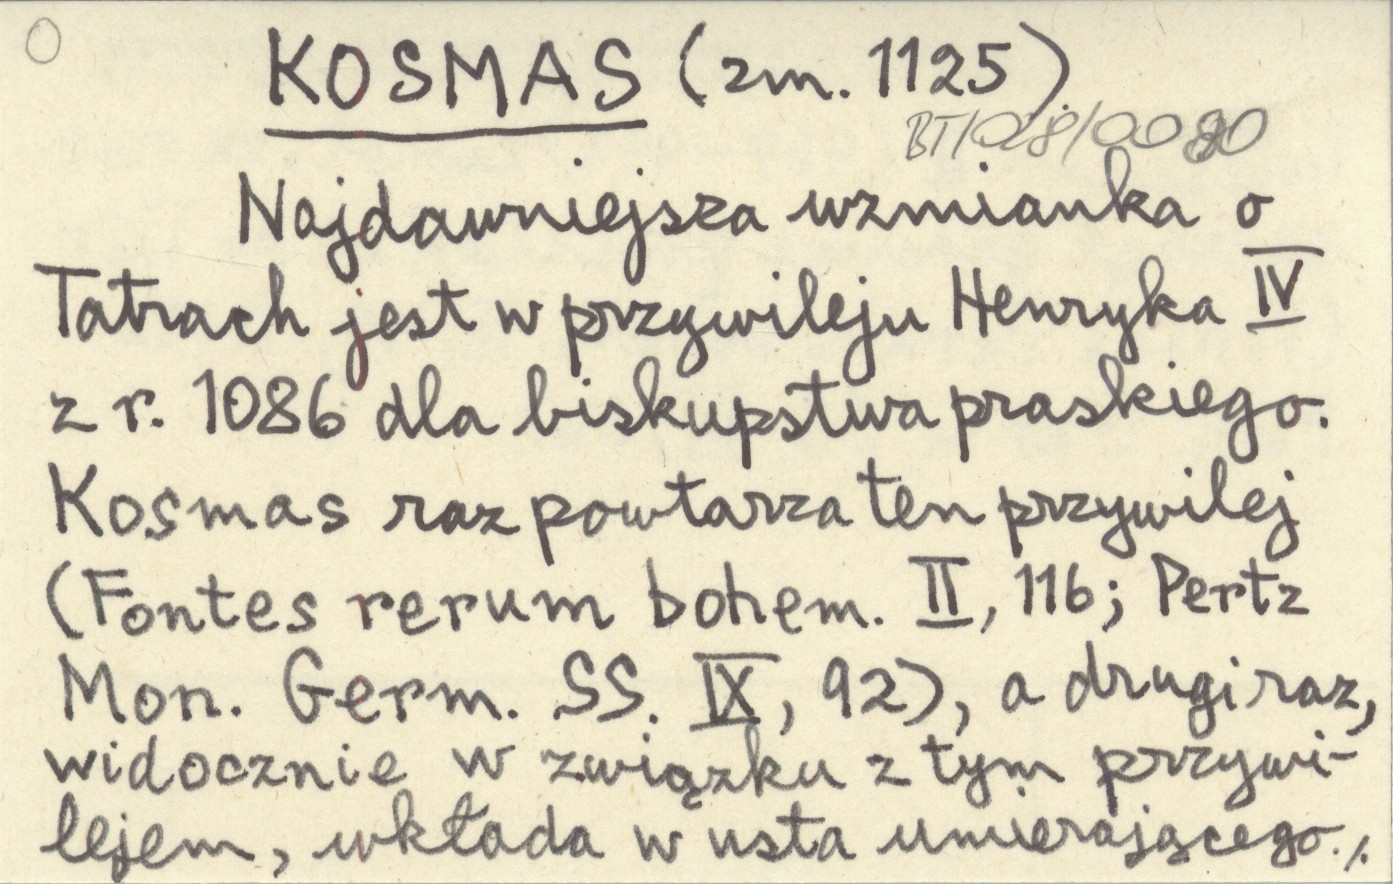 O
KOSMAS (zm. 1125).
BT/028/0080
Najdawniejsza wzmianka o
Tatrach jest w przywileju Henryka IV
z r. 1086 dla biskupstwa praskiego.
Kosmas raz powtarza ten przywilej
(Fontes rerum bohem. II, 116; Pertz
Mon. Germ. SS. IX, 92), a drugi raz,
widocznie w związku z tym przywi-
lejem, wkłada w usta umierającego ./.